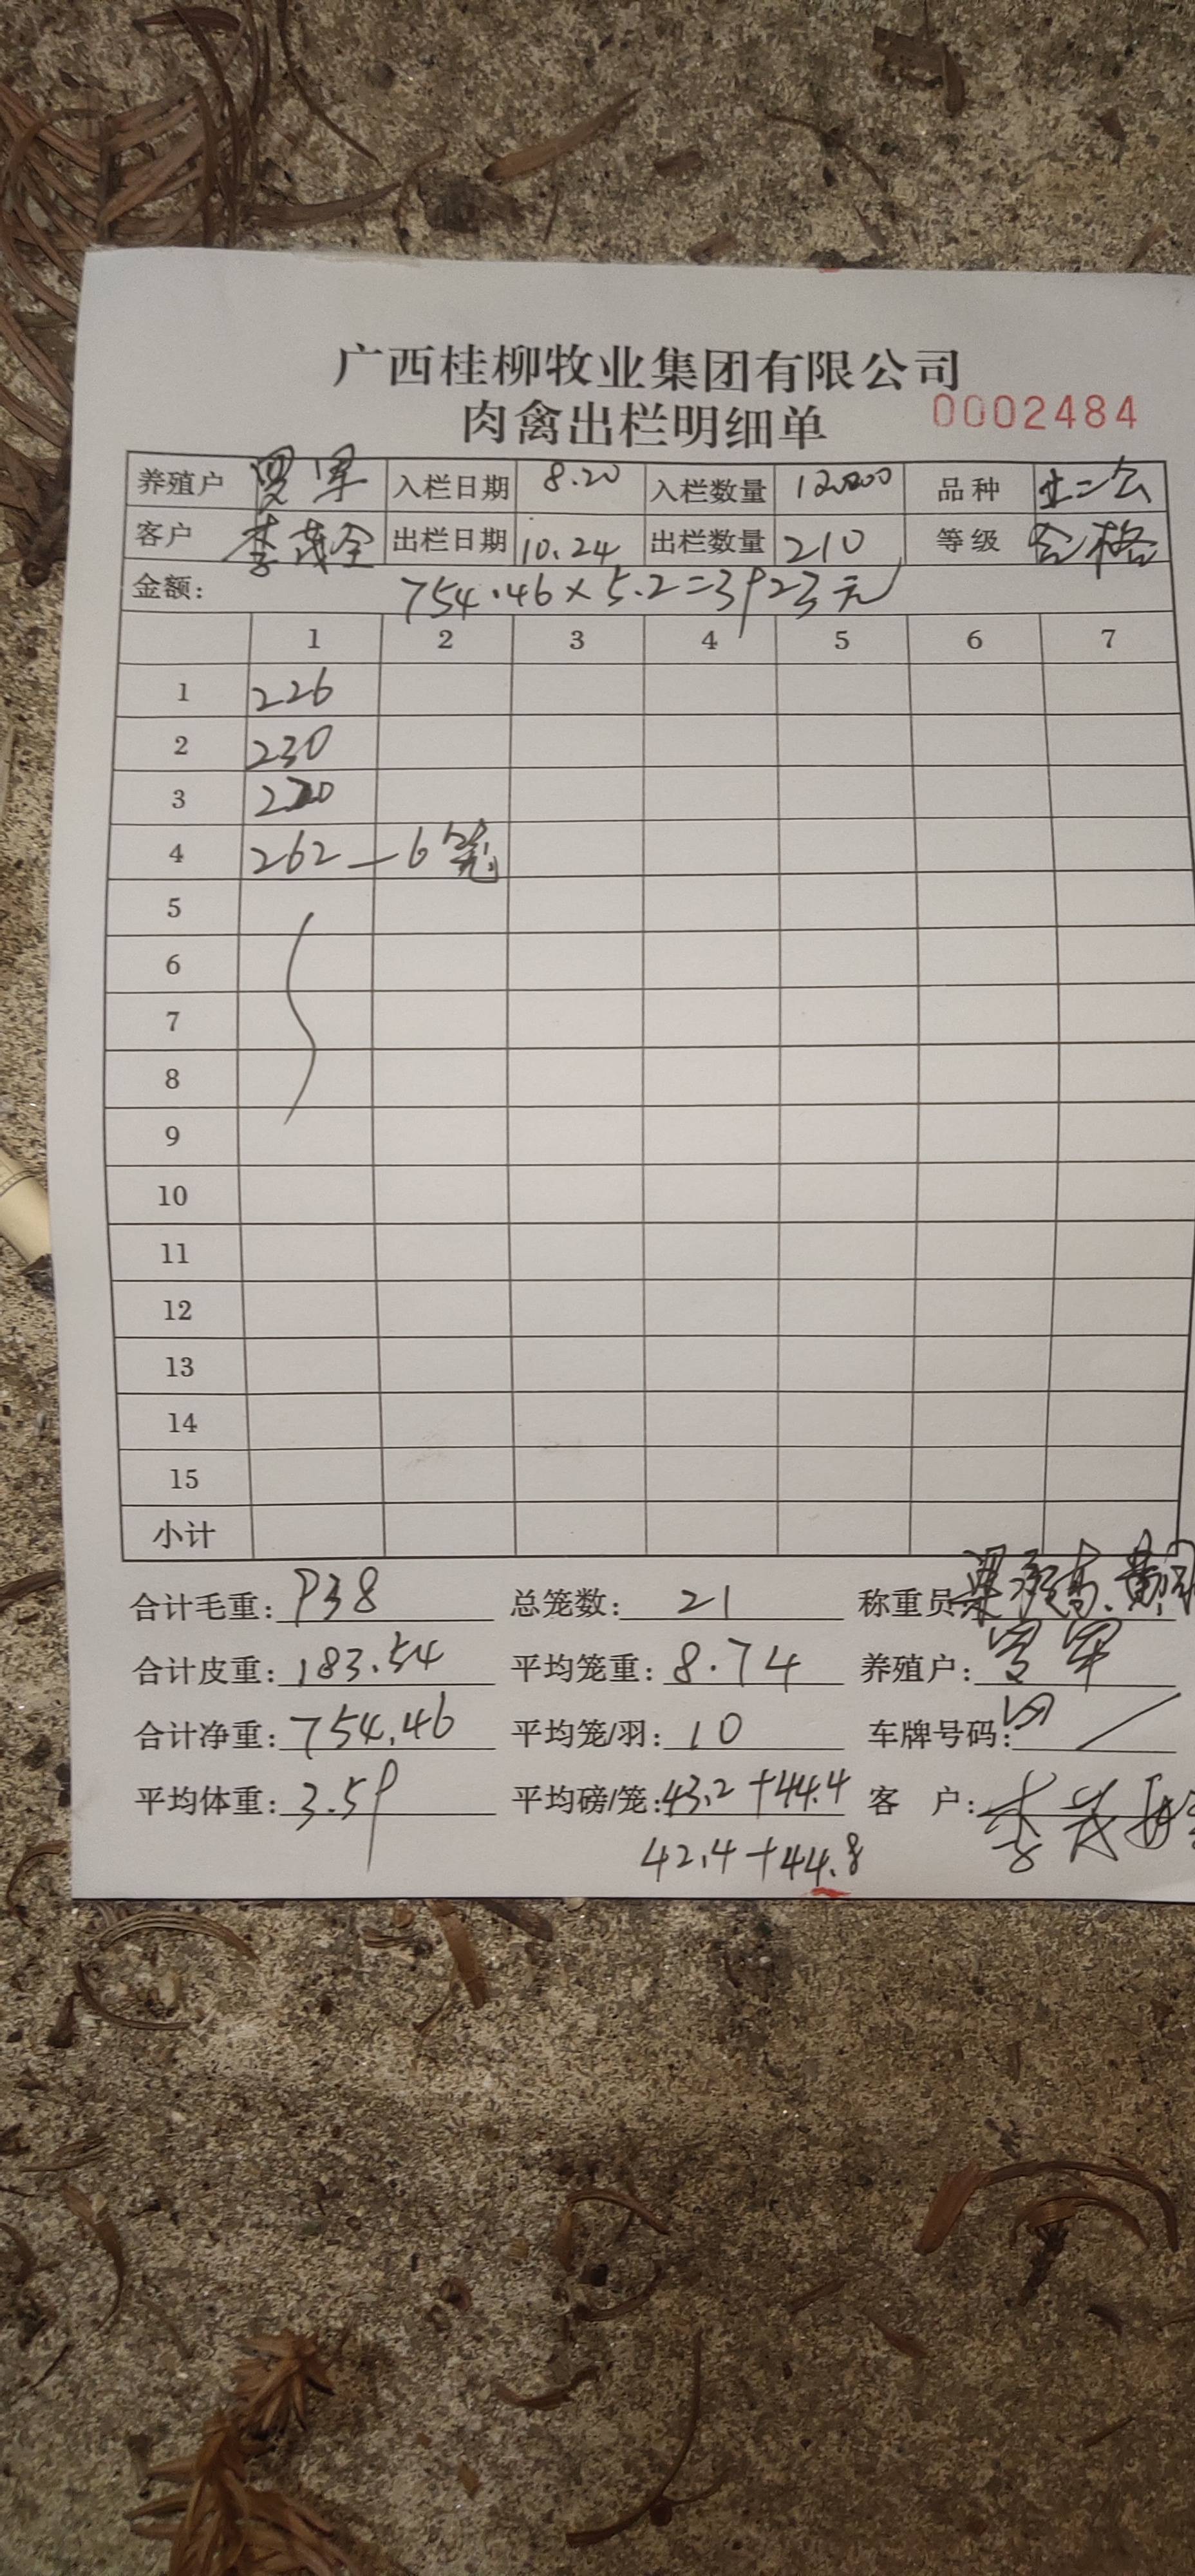 广西桂柳牧业集团有限公司
肉禽出栏明细单 0002484
养殖户 罗军 入栏日期 8.20 入栏数量 12000 品种 土二公
客户 李茂全 出栏日期 10.24 出栏数量 210 等级 合格
金额: 754.46×5.2=3923元
1 2 3 4 5 6 7
1 226
2 230
3 220
4 262—6笼
5
6
7
8
9
10
11
12
13
14
15
小计
合计毛重: 938 总笼数: 21 称重员
合计皮重: 183.54 平均笼重: 8.74 养殖户: 罗军
合计净重: 754.46 平均笼/羽: 10 车牌号码:
平均体重: 3.59 平均磅/笼: 43.2+44.4 客 户: 李茂
42.4+44.8